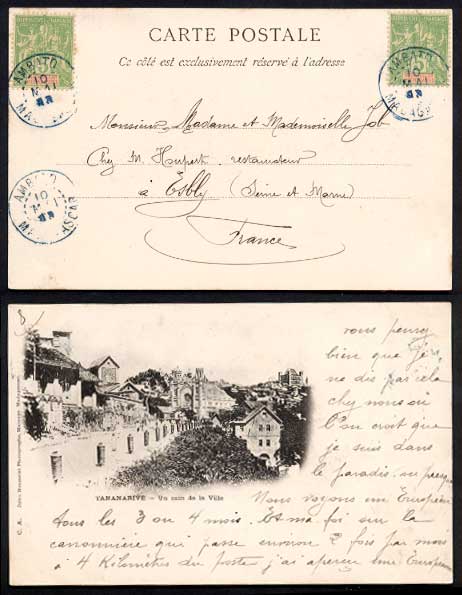 CARTE POSTALE
Ce côté est exclusivement réservé à l'adresse
AMBATO
10
MAI
AMBATO
10
MAI
MADAGASCAR
Monsieur Madame et Mademoiselle Job
Chez M. Hupert restaurateur
à Esbly (Seine et Marne)
France
AMBATO
10
MAI
TANANARIVE — Un coin de la Ville
vous pensez
bien que je
ne dis pas cela
chez nous où
l'on croit que
je suis dans
le paradis. ou presque
Nous voyons un Européen
tous les 3 ou 4 mois. Et ma foi sur la
canonnière qui passe environ 2 fois par mois
à 4 kilomètres du poste j'ai aperçu une Européenne